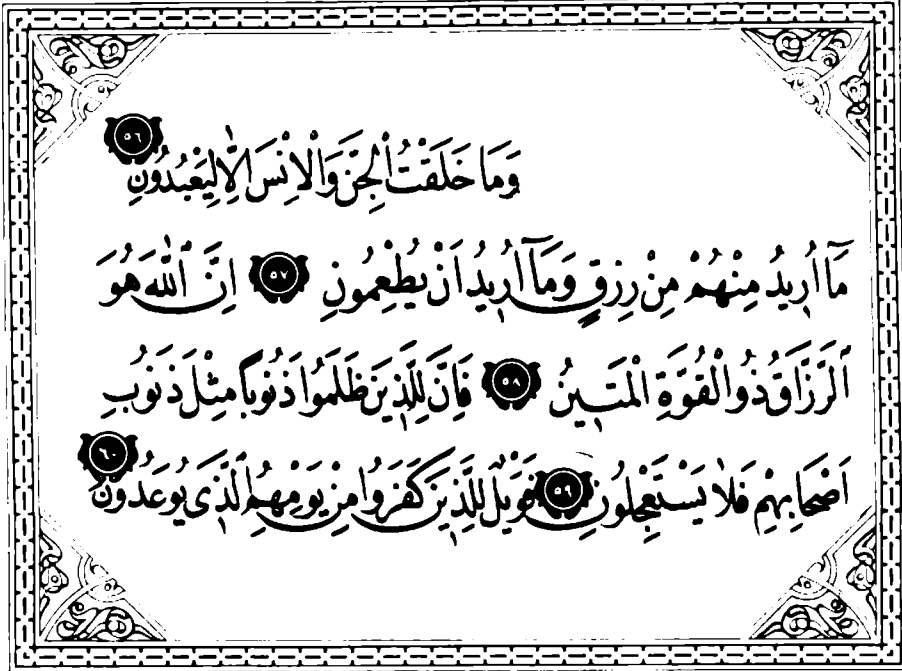 وَمَا خَلَقْتُ الْجِنَّ وَالْاِنْسَ اِلَّا لِيَعْبُدُونِ ﴿٥٦﴾
مَٓا اُر۪يدُ مِنْهُمْ مِنْ رِزْقٍ وَمَٓا اُر۪يدُ اَنْ يُطْعِمُونِ ﴿٥٧﴾ اِنَّ اللّٰهَ هُوَ
الرَّزَّاقُ ذُو الْقُوَّةِ الْمَت۪ينُ ﴿٥٨﴾ فَاِنَّ لِلَّذ۪ينَ ظَلَمُوا ذَنُوبًا مِثْلَ ذَنُوبِ
اَصْحَابِهِمْ فَلَا يَسْتَعْجِلُونِ ﴿٥٩﴾ فَوَيْلٌ لِلَّذ۪ينَ كَفَرُوا مِنْ يَوْمِهِمُ الَّذ۪ي يُوعَدُونَ ﴿٦٠﴾